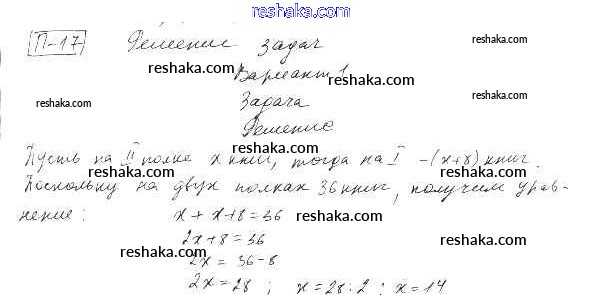 reshaka.com
П-17 Решение задач
reshaka.com
reshaka.com
Вариант 1
reshaka.com
reshaka.com
Задача
reshaka.com
Решение
Пусть на II полке x книг, тогда на I - (x+8) книг.
reshaka.com
reshaka.com
Поскольку на двух полках 36 книг, получим урав-
нение: x + x + 8 = 36
reshaka.com
reshaka.com
2x + 8 = 36
reshaka.com
reshaka.com
2x = 36 - 8
2x = 28 ; x = 28 : 2 ; x = 14
reshaka.com